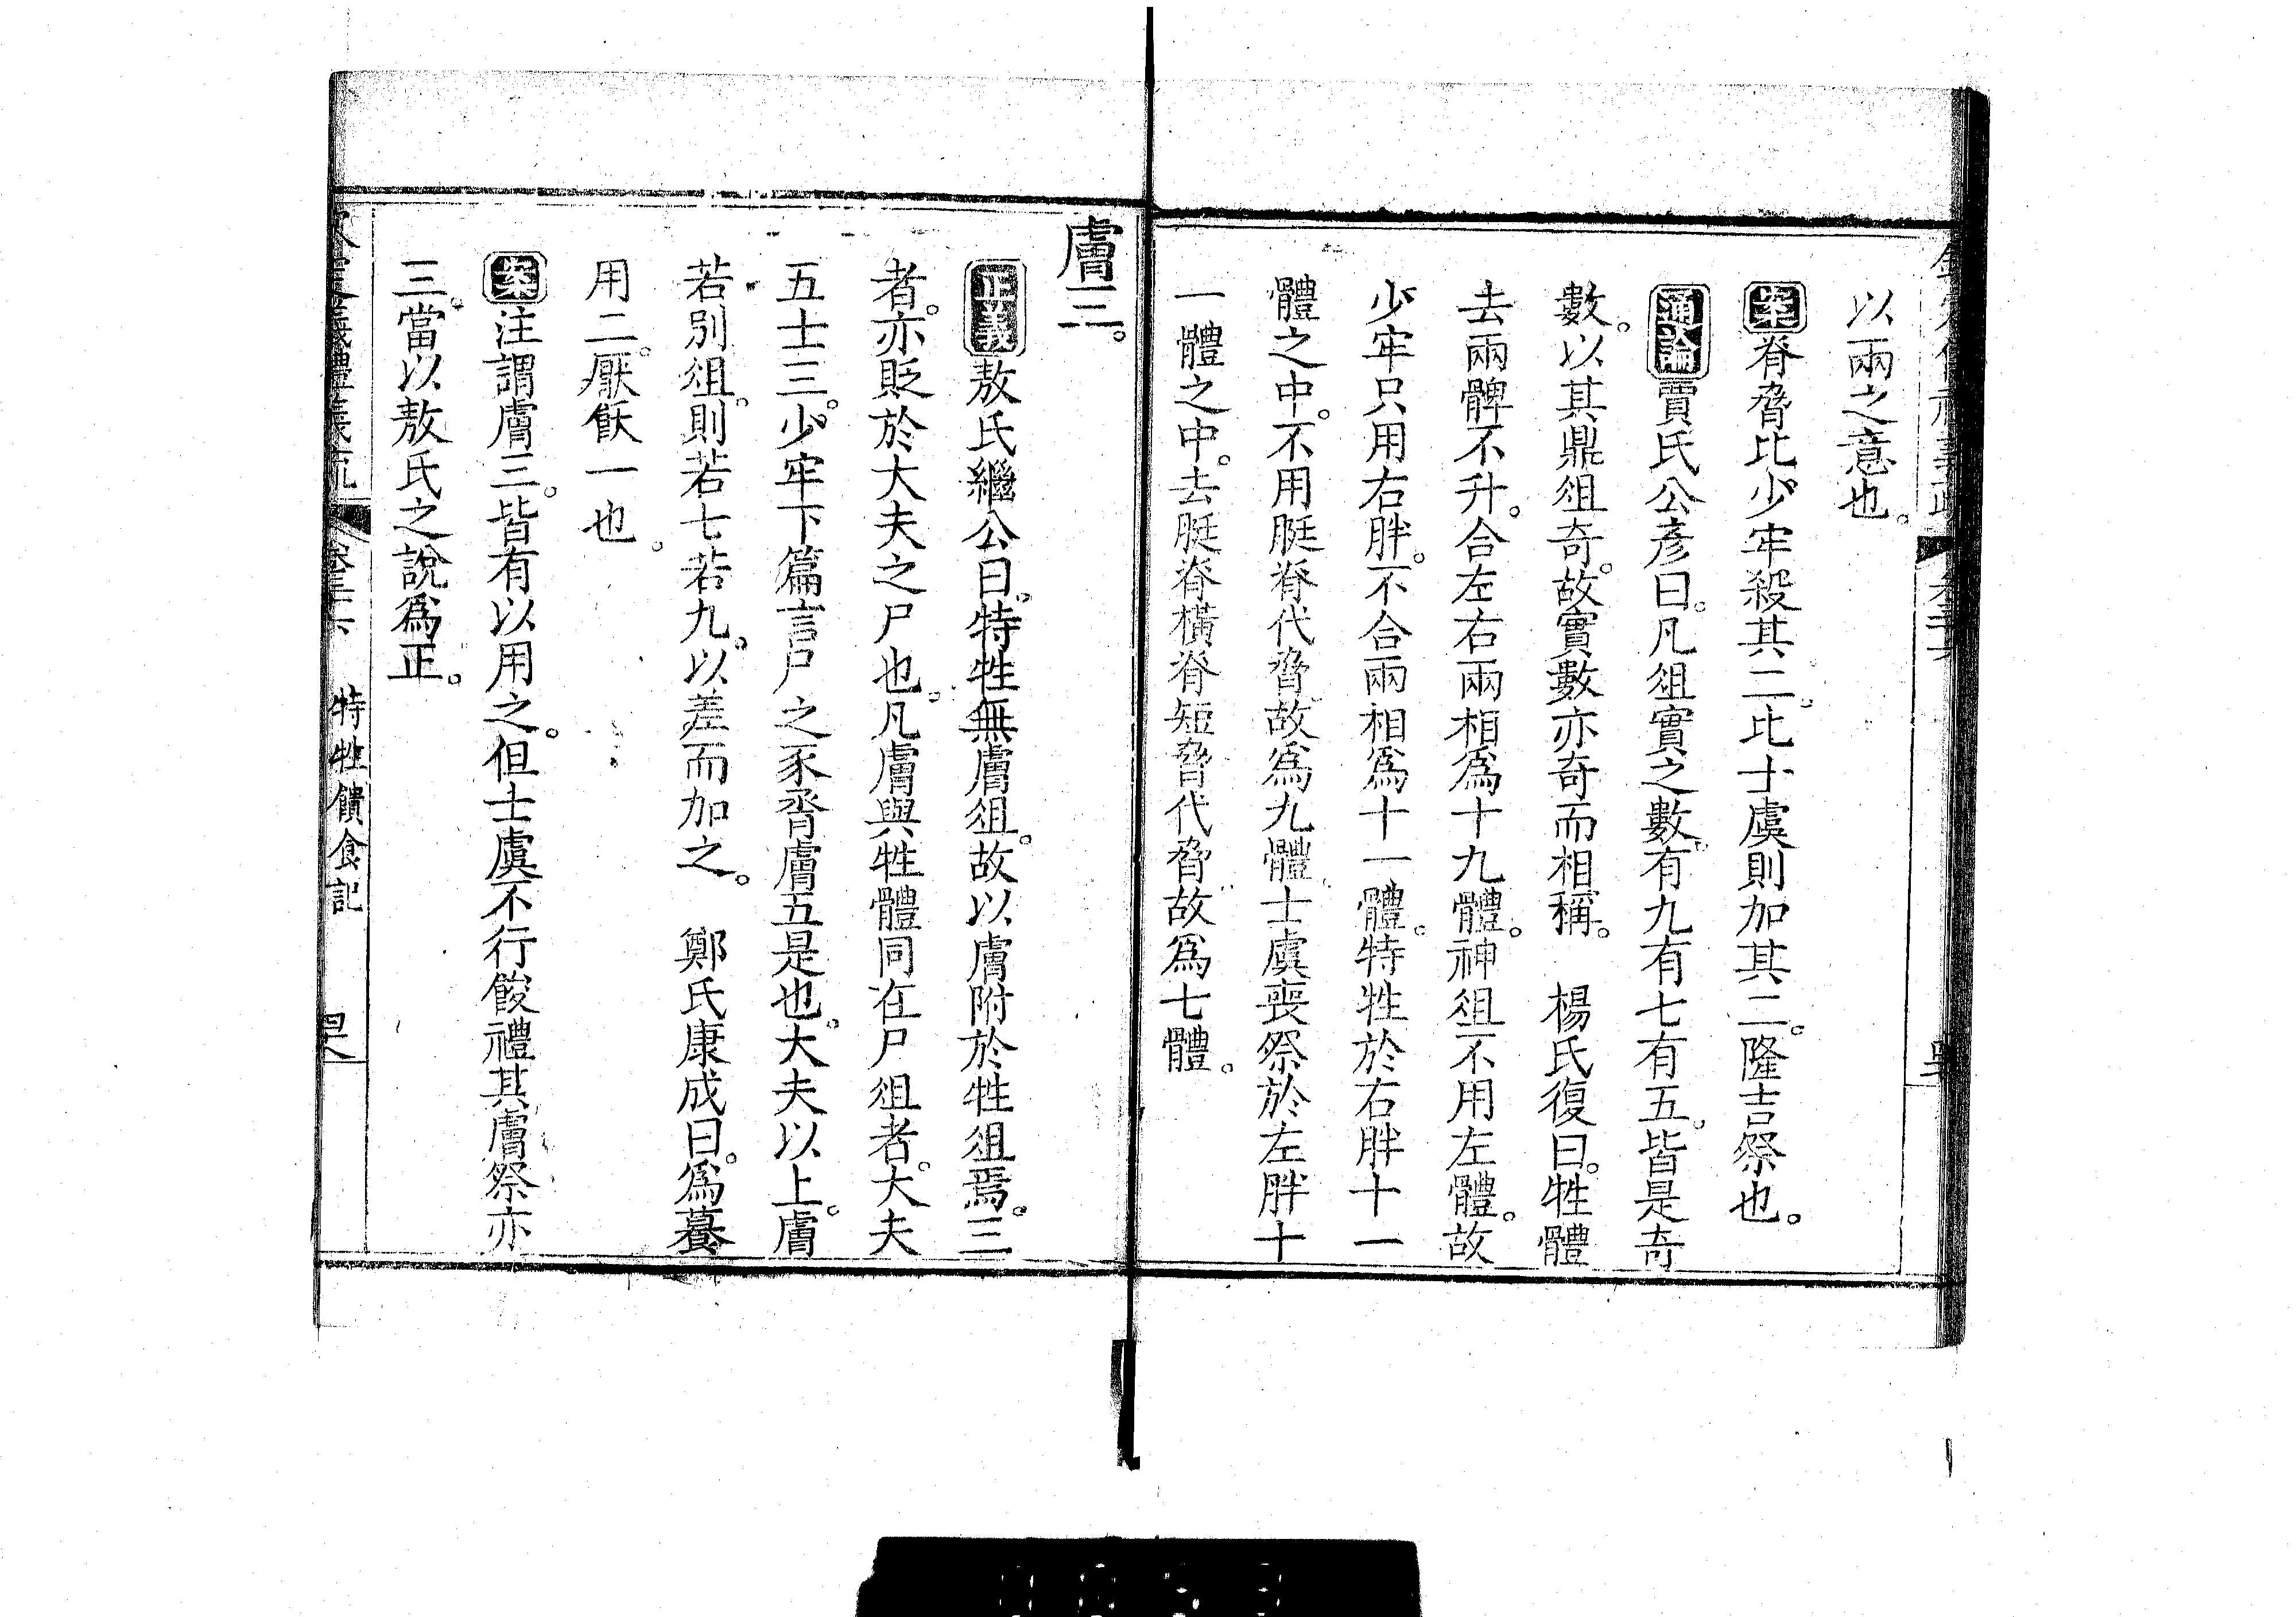 以兩之意也。
案脊脅比少牢殺其二。比士虞則加其二。隆吉祭也。
通論賈氏公彥曰。凡俎實之數。有九有七有五。皆是奇
數。以其鼎俎奇。故實數亦奇而相稱。　楊氏復曰。牲體
去兩髀不升。合左右兩相爲十九體。神俎不用左體。故
少牢只用右胖。不合兩相爲十一體。特牲於右胖十一
體之中。不用脡脊代脅。故爲九體。士虞喪祭於左胖十
一體之中。去脡脊橫脊短脅代脅。故爲七體。
膚三。
正義敖氏繼公曰。特牲無膚俎。故以膚附於牲俎焉。三
者。亦貶於大夫之尸也。凡膚與牲體同在尸俎者。大夫
五士三。少牢下篇言尸之豕脀膚五是也。大夫以上。膚
若別俎。則若七若九。以差而加之。　鄭氏康成曰。爲䭕
用二。厭飫一也。
案注謂膚三。皆有以用之。但士虞不行餕禮其膚祭亦
三。當以敖氏之說爲正。
特牲饋食記